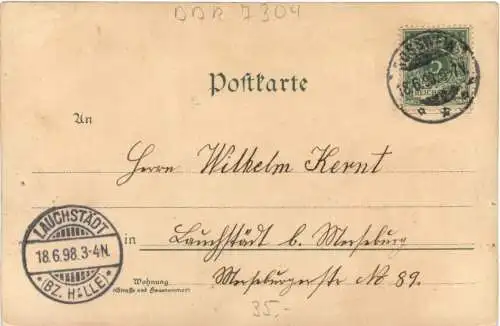 DDR 7304
Postkarte
18.6.98.
An
Herrn Wilhelm Kernt
LAUCHSTÄDT
18.6.98.3-4N.
*(BZ. HALLE)*
in Lauchstädt b. Merseburg
Wohnung
(Straße und Hausnummer)
Merseburgerstr № 89.
35,-